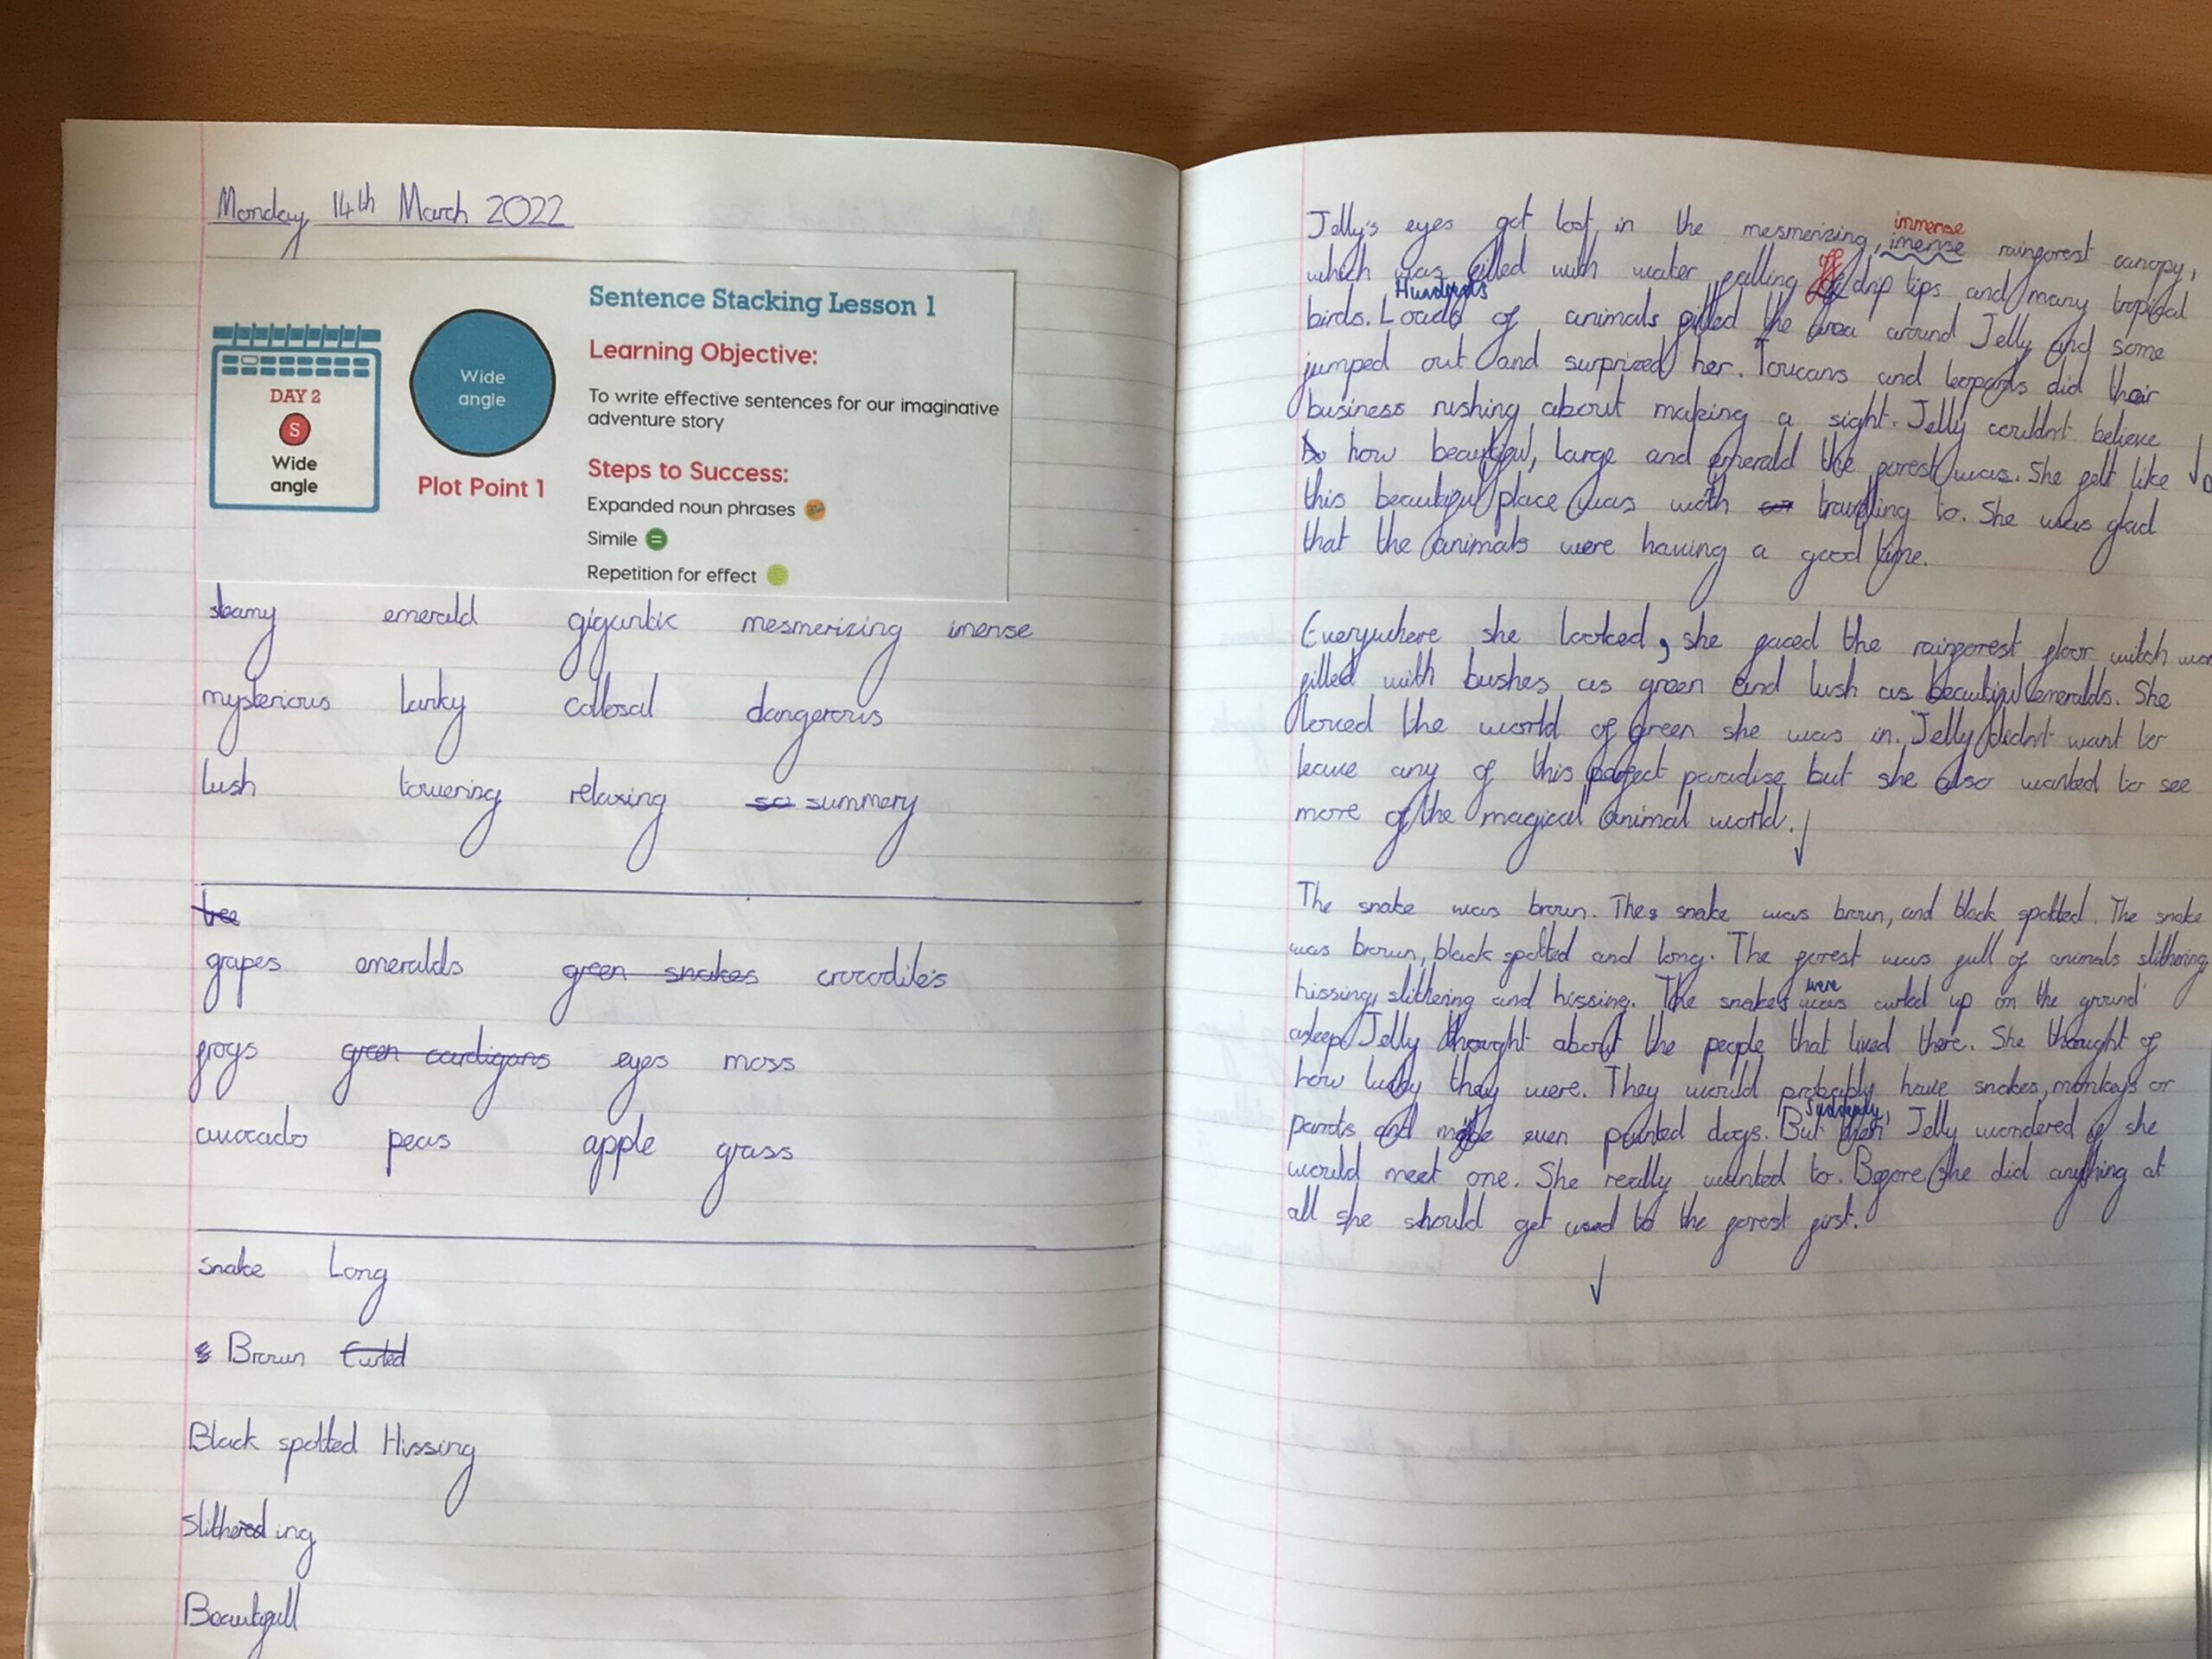 Monday 14th March 2022
Sentence Stacking Lesson 1
Learning Objective:
To write effective sentences for our imaginative
adventure story
Steps to Success:
Expanded noun phrases
Simile =
Repetition for effect
DAY 2
S
Wide
angle
Wide
angle
Plot Point 1
steamy emerald gigantic mesmerizing imense
mysterious lanky collosal dangerous
lush towering relaxing so summery
tree
grapes emeralds green snakes crocodile's
frogs green cardigans eyes moss
avocado peas apple grass
snake Long
Brown Curled
Black spotted Hissing
Slithered ing
Beautifull
Jelly's eyes got lost in the mesmerizing, imense rainforest canopy,
immense
which was filled with water falling of drip tips and many tropical
off
birds. Loads of animals filled the area around Jelly and some
Hundreds
jumped out and surprized her. Toucans and leopards did their
business rushing about making a sight. Jelly couldn't believe
how beautiful, large and emerald the forest was. She felt like
this beautiful place was woth travelling to. She was glad
that the animals were having a good time.
Everywhere she looked, she faced the rainforest floor witch was
filled with bushes as green and lush as beautiful emeralds. She
loved the world of green she was in. Jelly didn't want to
leave any of this perfect paradise but she also wanted to see
more of the magical animal world.
The snake was brown. The snake was brown, and black spotted. The snake
was brown, black spotted and long. The forest was full of animals slithering,
hissing, slithering and hissing. The snakes was curled up on the ground
were
asleep. Jelly thought about the people that lived there. She thought of
how lucky they were. They would probably have snakes, monkeys or
parrots and maybe even painted dogs. But then Jelly wondered if she
Suddenly,
would meet one. She really wanted to. Before she did anything at
all she should get used to the forest first.